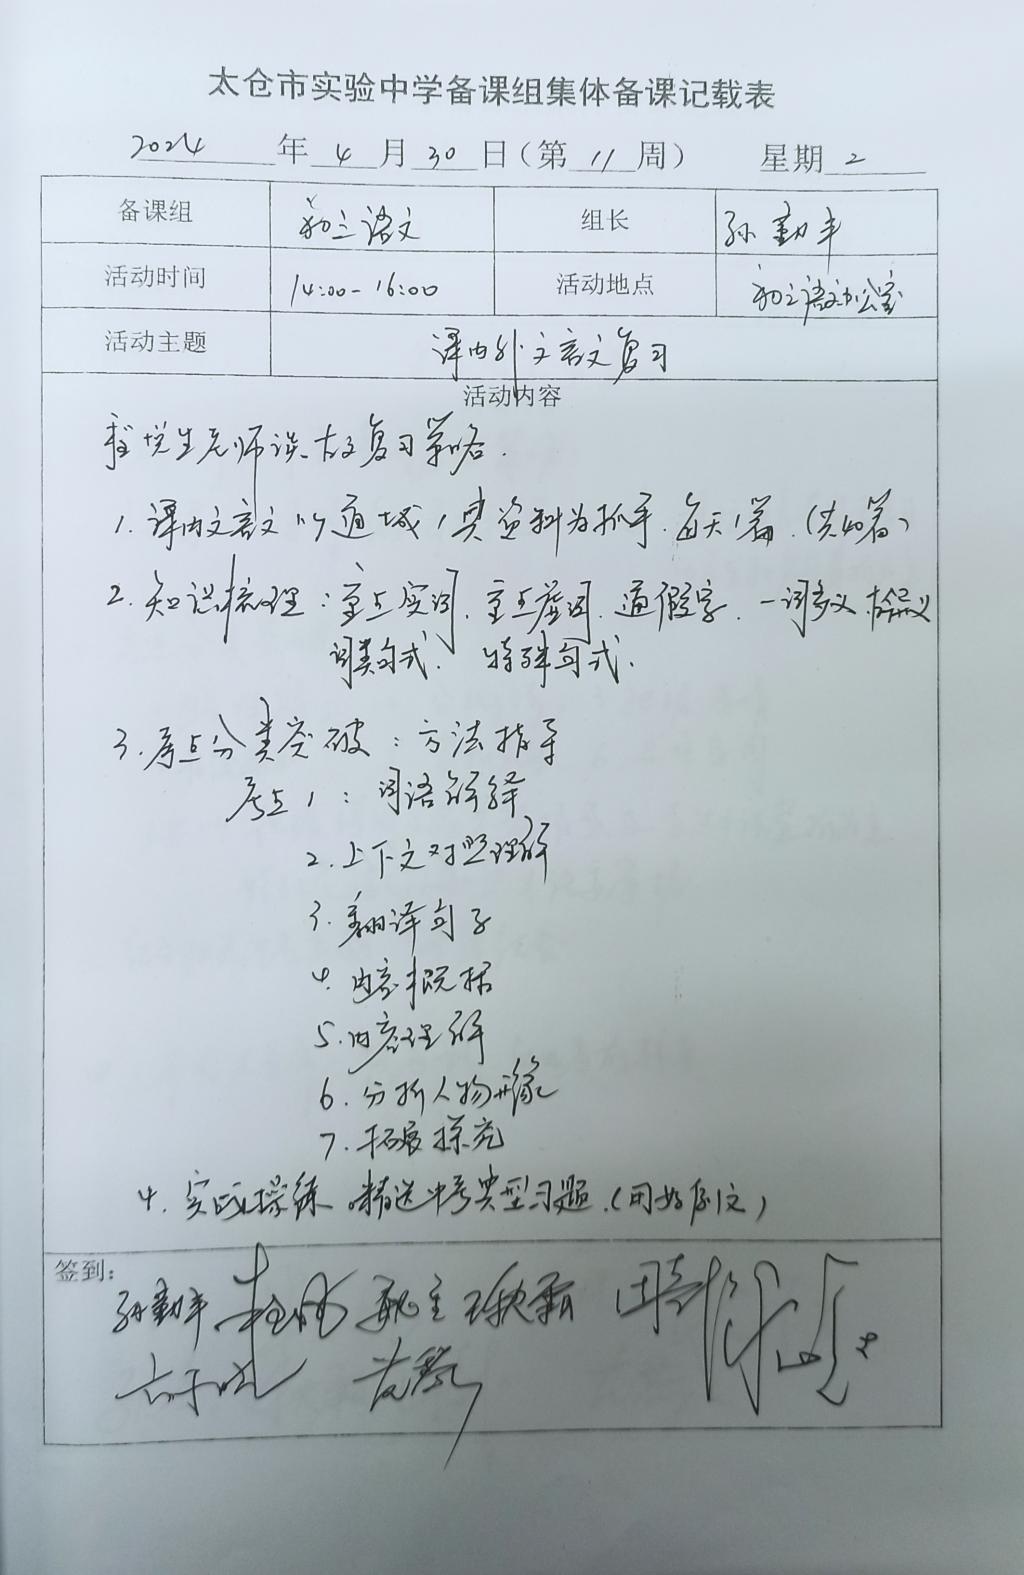 太仓市实验中学备课组集体备课记载表
2024 年 4 月 30 日（第 11 周） 星期 2
备课组 初三语文 组长 孙勤丰
活动时间 14:00-16:00 活动地点 初三语文办公室
活动主题 课内外文言文复习
活动内容
老师谈古文复习策略.
1. 课内文言文以通城1典资料为抓手.每天1篇.(共40篇)
2. 知识梳理：重点实词.重点虚词.通假字.一词多义.古今异义
词类句式. 特殊句式.
3. 考点分类突破：方法指导
考点1：词语解释
2. 上下文对照理解
3. 翻译句子
4. 内容概括
5. 内容理解
6. 分析人物形象
7. 拓展探究
4. 实战操练.精选中考典型习题.(用好例文)
签到：
孙勤丰